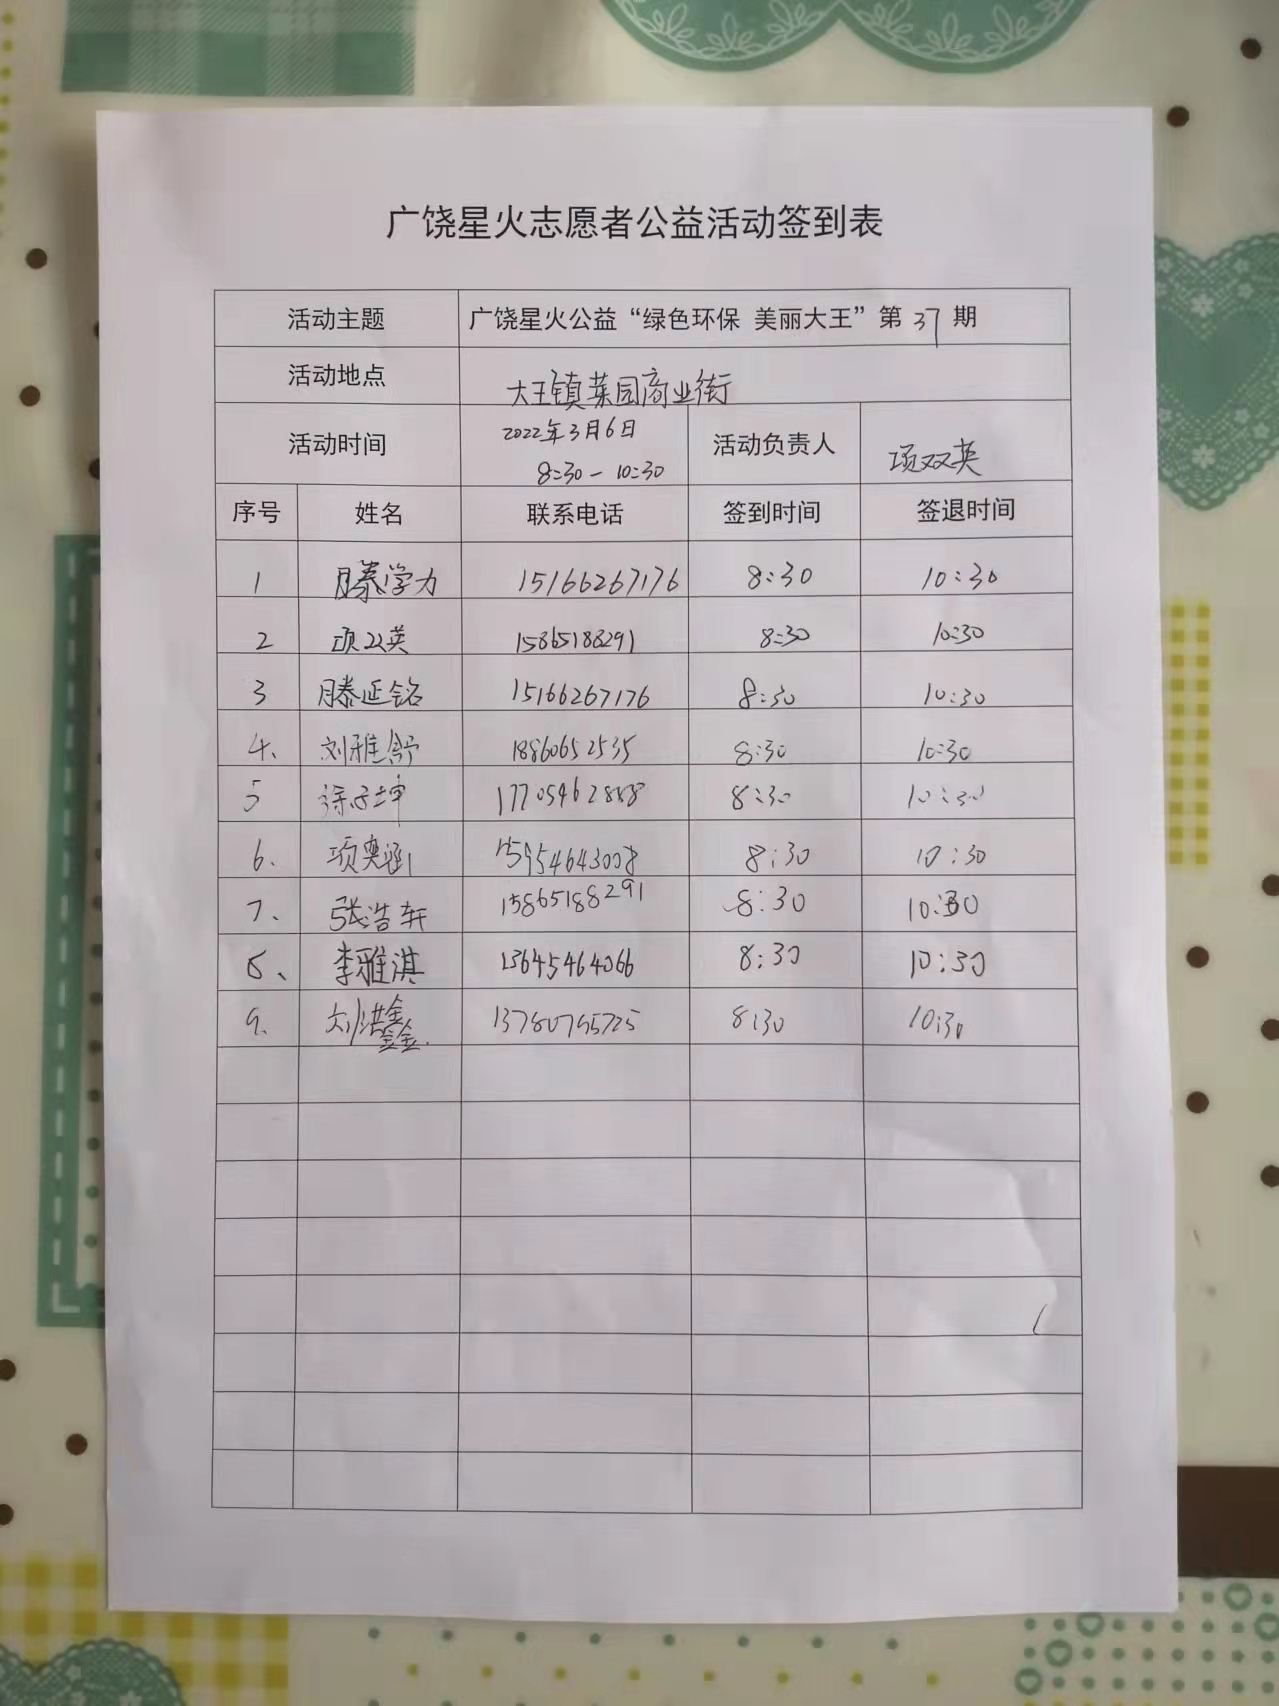 广饶星火志愿者公益活动签到表
活动主题 广饶星火公益“绿色环保 美丽大王”第 37 期
活动地点 大王镇菜园商业街
活动时间 2022年3月6日 8:30-10:30 活动负责人 项双英
序号 姓名 联系电话 签到时间 签退时间
1 滕学力 15166267176 8:30 10:30
2 项双英 15865188291 8:30 10:30
3 滕延铭 15166267176 8:30 10:30
4、 刘雅舒 18860652535 8:30 10:30
5 徐子坤 17705462888 8:30 10:30
6、 项奥涵 15954643008 8:30 10:30
7、 张浩轩 15865188291 8:30 10:30
8、 李雅淇 13645464066 8:30 10:30
9、 刘洪鑫 8:30 10:30